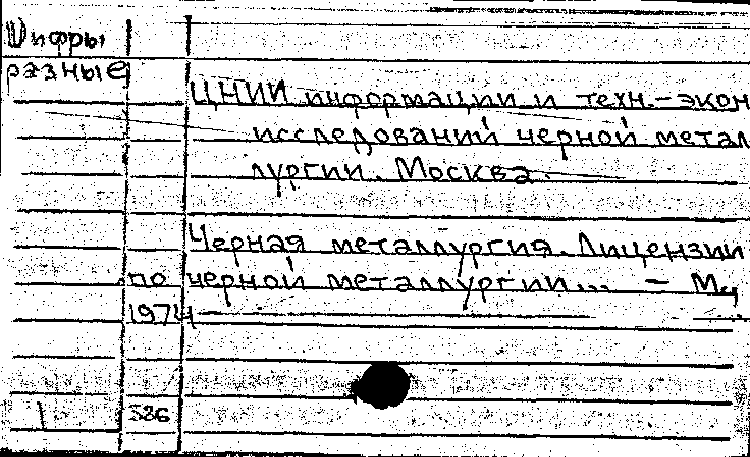 Шифры
разные
ЦНИИ информации и техн.-экон
исследований черной метал
лургии. Москва.
Черная металлургия. Лицензии
по черной металлургии... — М.,
1974—
586